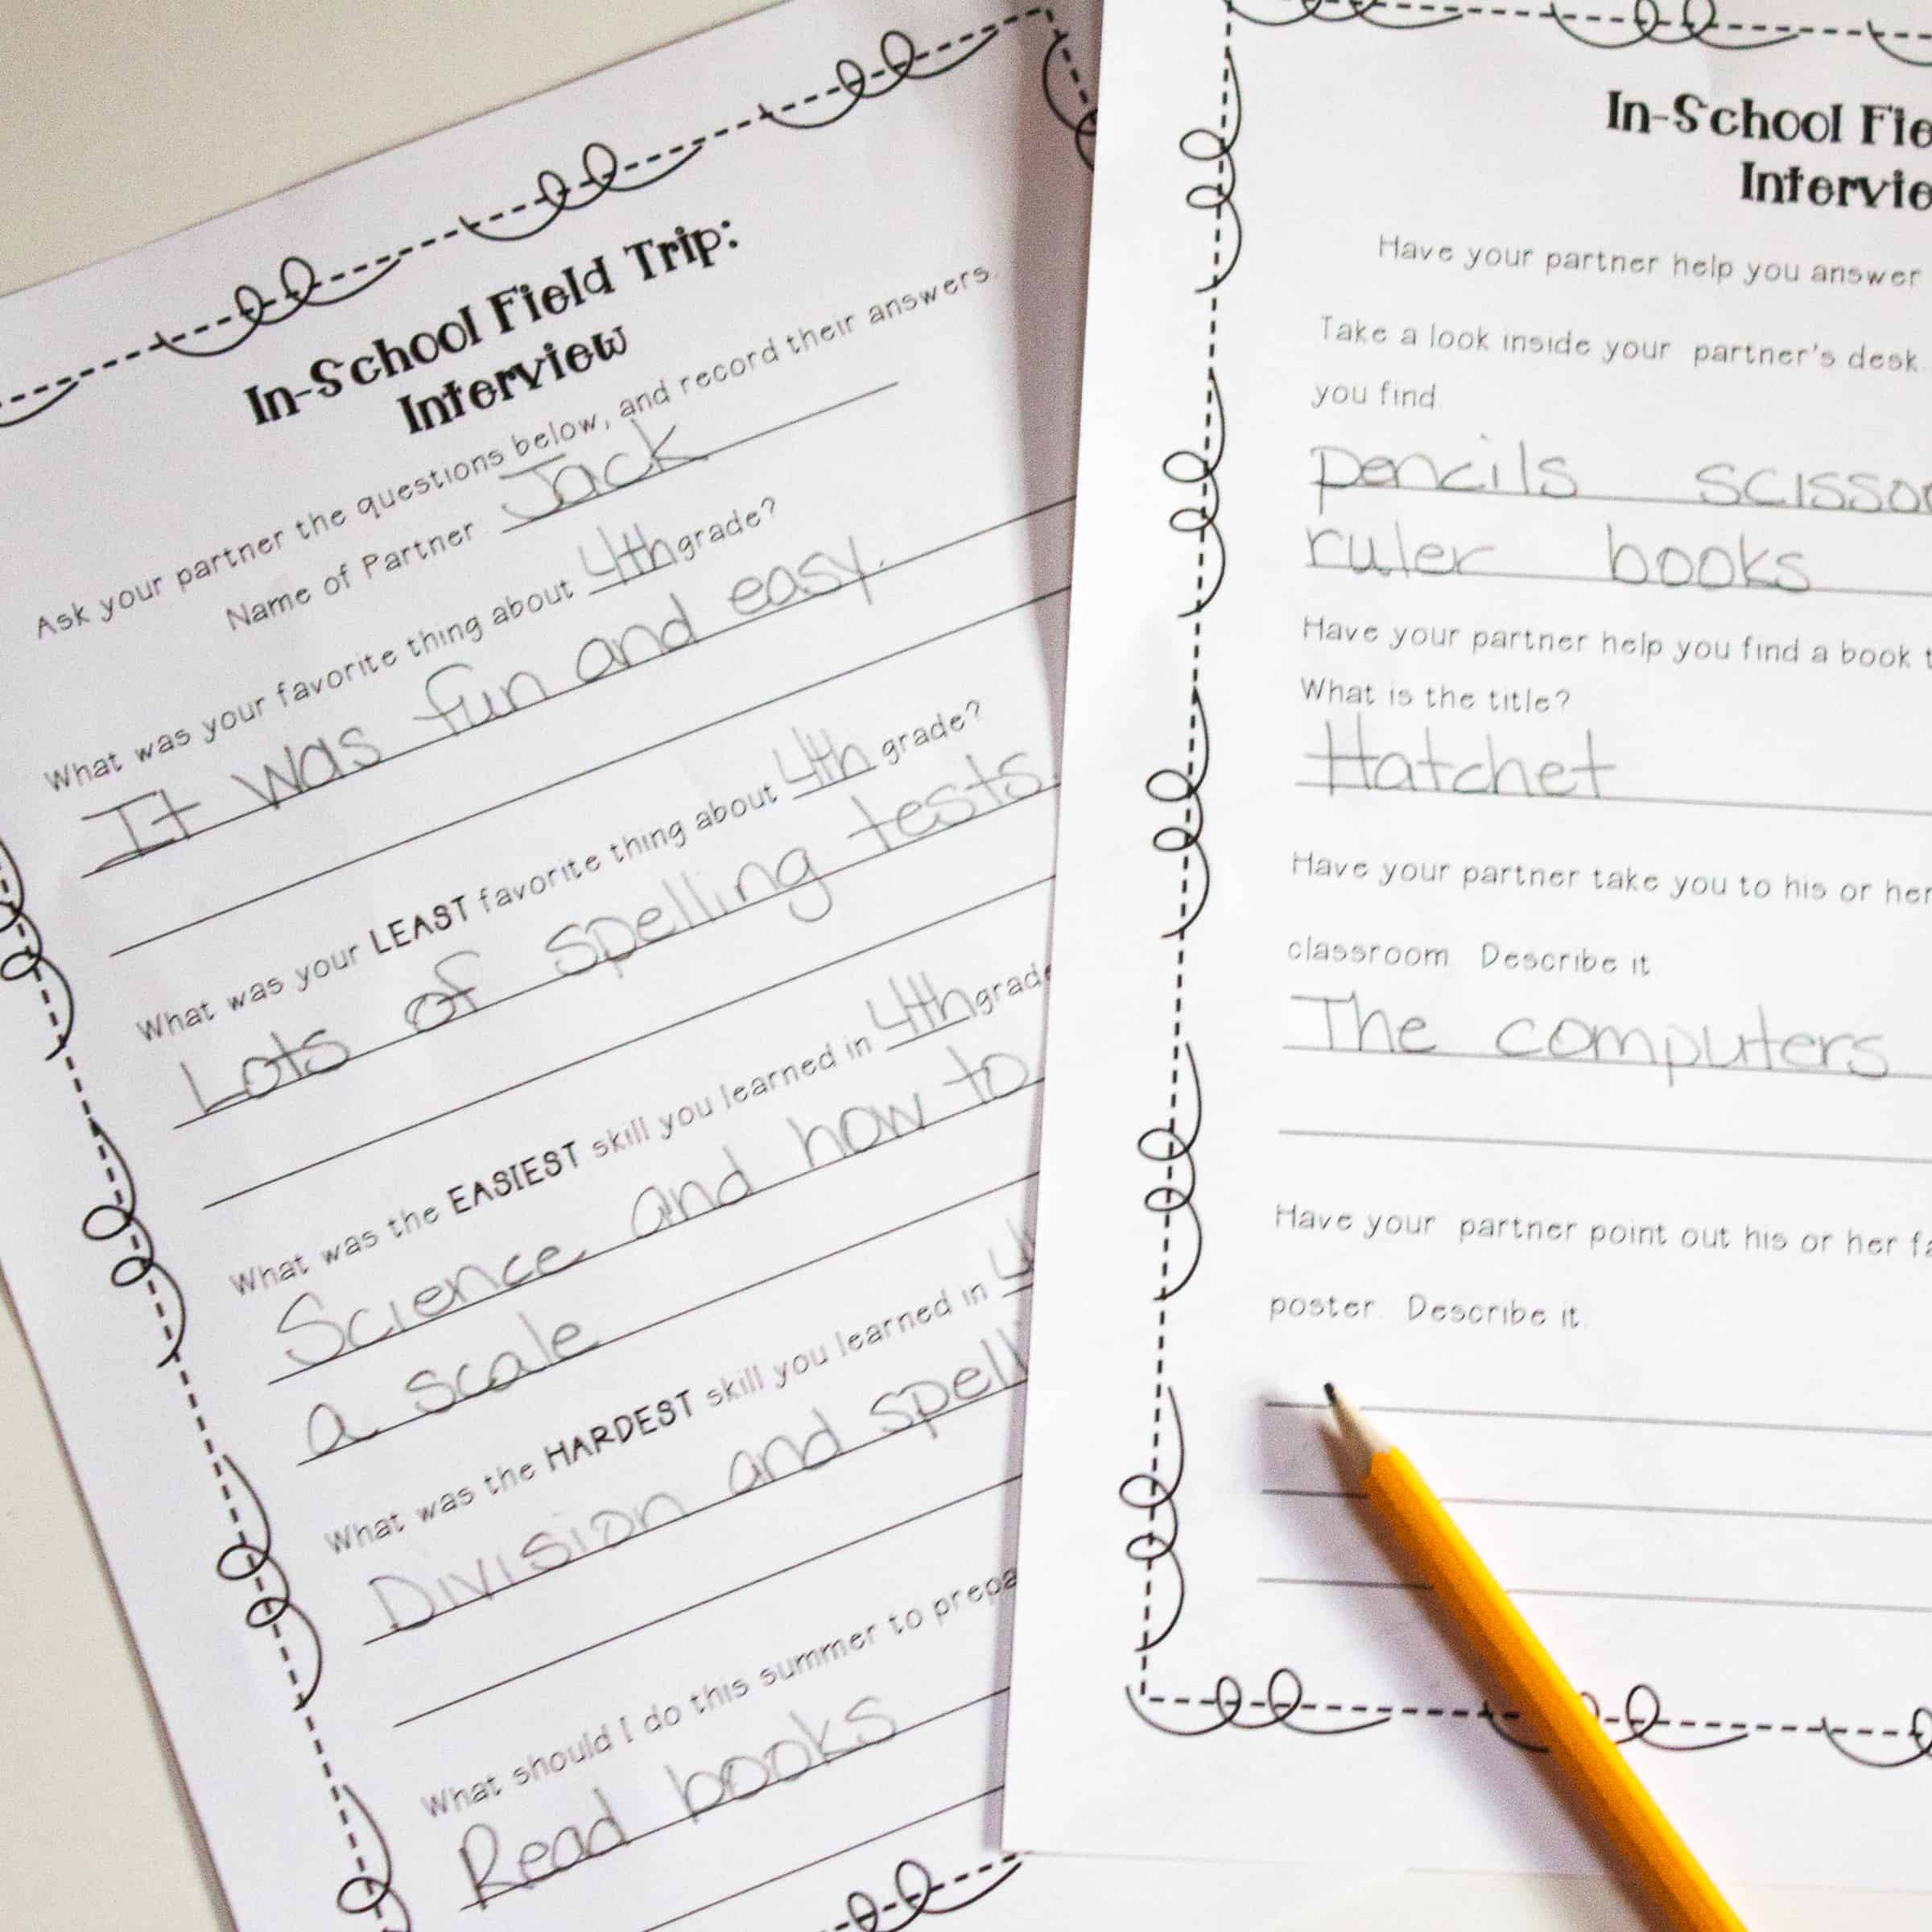 In-School Field Trip:
Interview
Ask your partner the questions below, and record their answers.
Name of Partner Jack
What was your favorite thing about 4th grade?
It was fun and easy.
What was your LEAST favorite thing about 4th grade?
Lots of spelling tests.
What was the EASIEST skill you learned in 4th grade
Science and how to
a scale
What was the HARDEST skill you learned in
Division and spell
What should I do this summer to prepa
Read books
In-School Fie
Intervie
Have your partner help you answer
Take a look inside your partner's desk.
you find.
pencils scissor
ruler books
Have your partner help you find a book t
What is the title?
Hatchet
Have your partner take you to his or her
classroom. Describe it
The computers
Have your partner point out his or her fa
poster. Describe it.